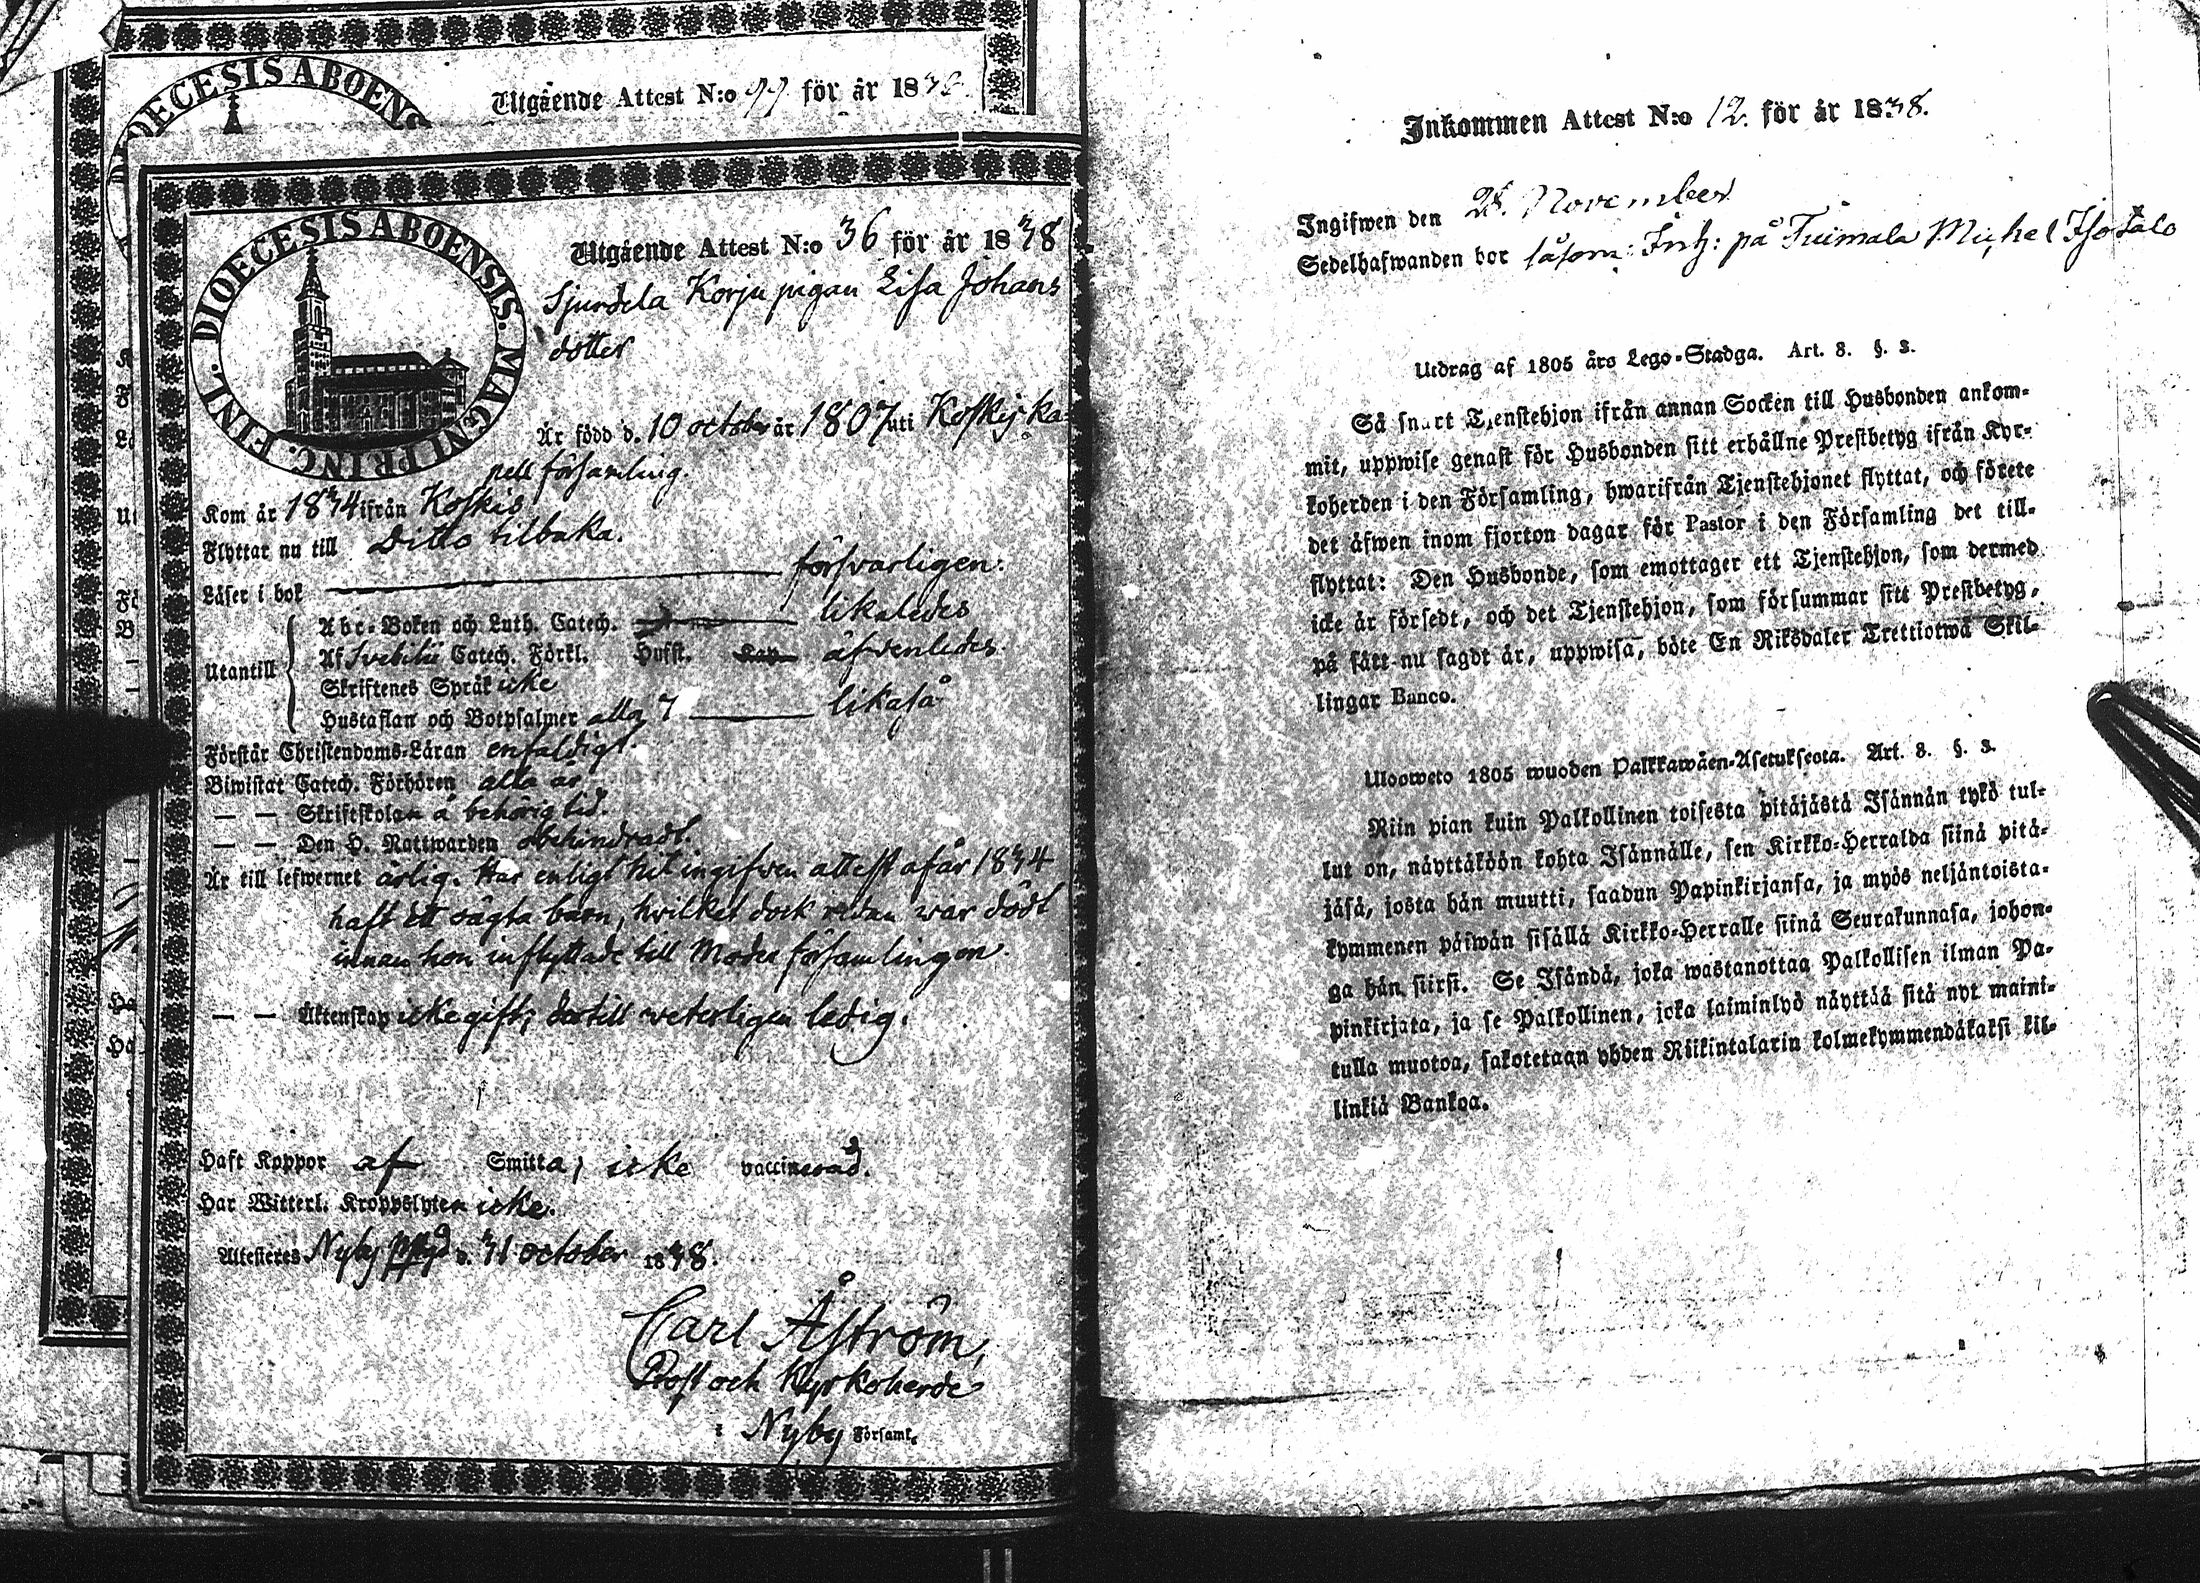 DIOECESIS ABOENS
Utgående Attest N:o 99 för år 18
DIOECESIS ABOENSIS. MAGNI PRINC. FINL.
Utgående Attest N:o 36 för år 1838
Sjurdela Korju pigan Lisa Johans
dotter
Är född d. 10 october år 1807 uti Koskis ka-
pell församling.
Kom år 1834 ifrån Koskis
Flyttar nu till Ditto tilbaka.
Läser i bok försvarligen.
Abc-Boken och Luth. Catech. likaledes
Utantill Af Svebilii Catech. Förkl. Hufst. äfvenledes.
Skriftenes Språk icke
Hustaflan och Botpsalmer alla 7 likaså
Förstår Christendoms-Läran enfaldigt.
Biwistat Catech. Förhören alla år
— — Skriftskolan å behörig tid.
— — Den H. Nattwarden obehindradt.
Är till lefwernet ärlig. Har enligt hit ingifven attest af år 1834
haft ett oägta barn, hvilket dock redan war dödt
innan hon inflyttade till Moder församlingen.
— — Äktenskap icke gift; dertill weterligen ledig.
Haft Koppor af Smitta; icke vaccinerad.
Har Witterl. Kroppslyten icke.
Attesteres Nyby d. 31 october 1838.
Carl Åström,
Prost och Kyrkoherde
i Nyby Församl.
Inkommen Attest N:o 12. för år 1838.
Ingifwen den 28. November
Sedelhafwanden bor såsom Inh: på Tuimala Michel Isotalo
Utdrag af 1805 års Lego-Stadga. Art. 8. §. 3.
Så snart Tjenstehjon ifrån annan Socken till Husbonden ankom-
mit, uppwise genast för Husbonden sitt erhållne Prestbetyg ifrån Kyr-
koherden i den Församling, hwarifrån Tjenstehjonet flyttat, och förete
det äfwen inom fjorton dagar för Pastor i den Församling det till-
flyttat: Den Husbonde, som emottager ett Tjenstehjon, som dermed
icke är försedt, och det Tjenstehjon, som försummar sitt Prestbetyg,
på sätt nu sagdt är, uppwisa, böte En Riksdaler Trettiotwå Skil-
lingar Banco.
Ulosweto 1805 wuoden Palkkawäen-Asetuksesta. Art. 8. §. 3.
Niin pian kuin Palkollinen toisesta pitäjästä Isännän tykö tul-
lut on, näyttäköön kohta Isännälle, sen Kirkko-Herralda siinä pitä-
jäsä, josta hän muutti, saadun Papinkirjansa, ja myös neljäntoista-
kymmenen päiwän sisällä Kirkko-Herralle siinä Seurakunnasa, johon-
ga hän siirsi. Se Isändä, joka wastanottaa Palkollisen ilman Pa-
pinkirjata, ja se Palkollinen, joka laiminlyö näyttää sitä nyt maini-
tulla muotoa, sakotetaan yhden Riikintalarin kolmekymmendäkaksi kil-
linkiä Bankoa.